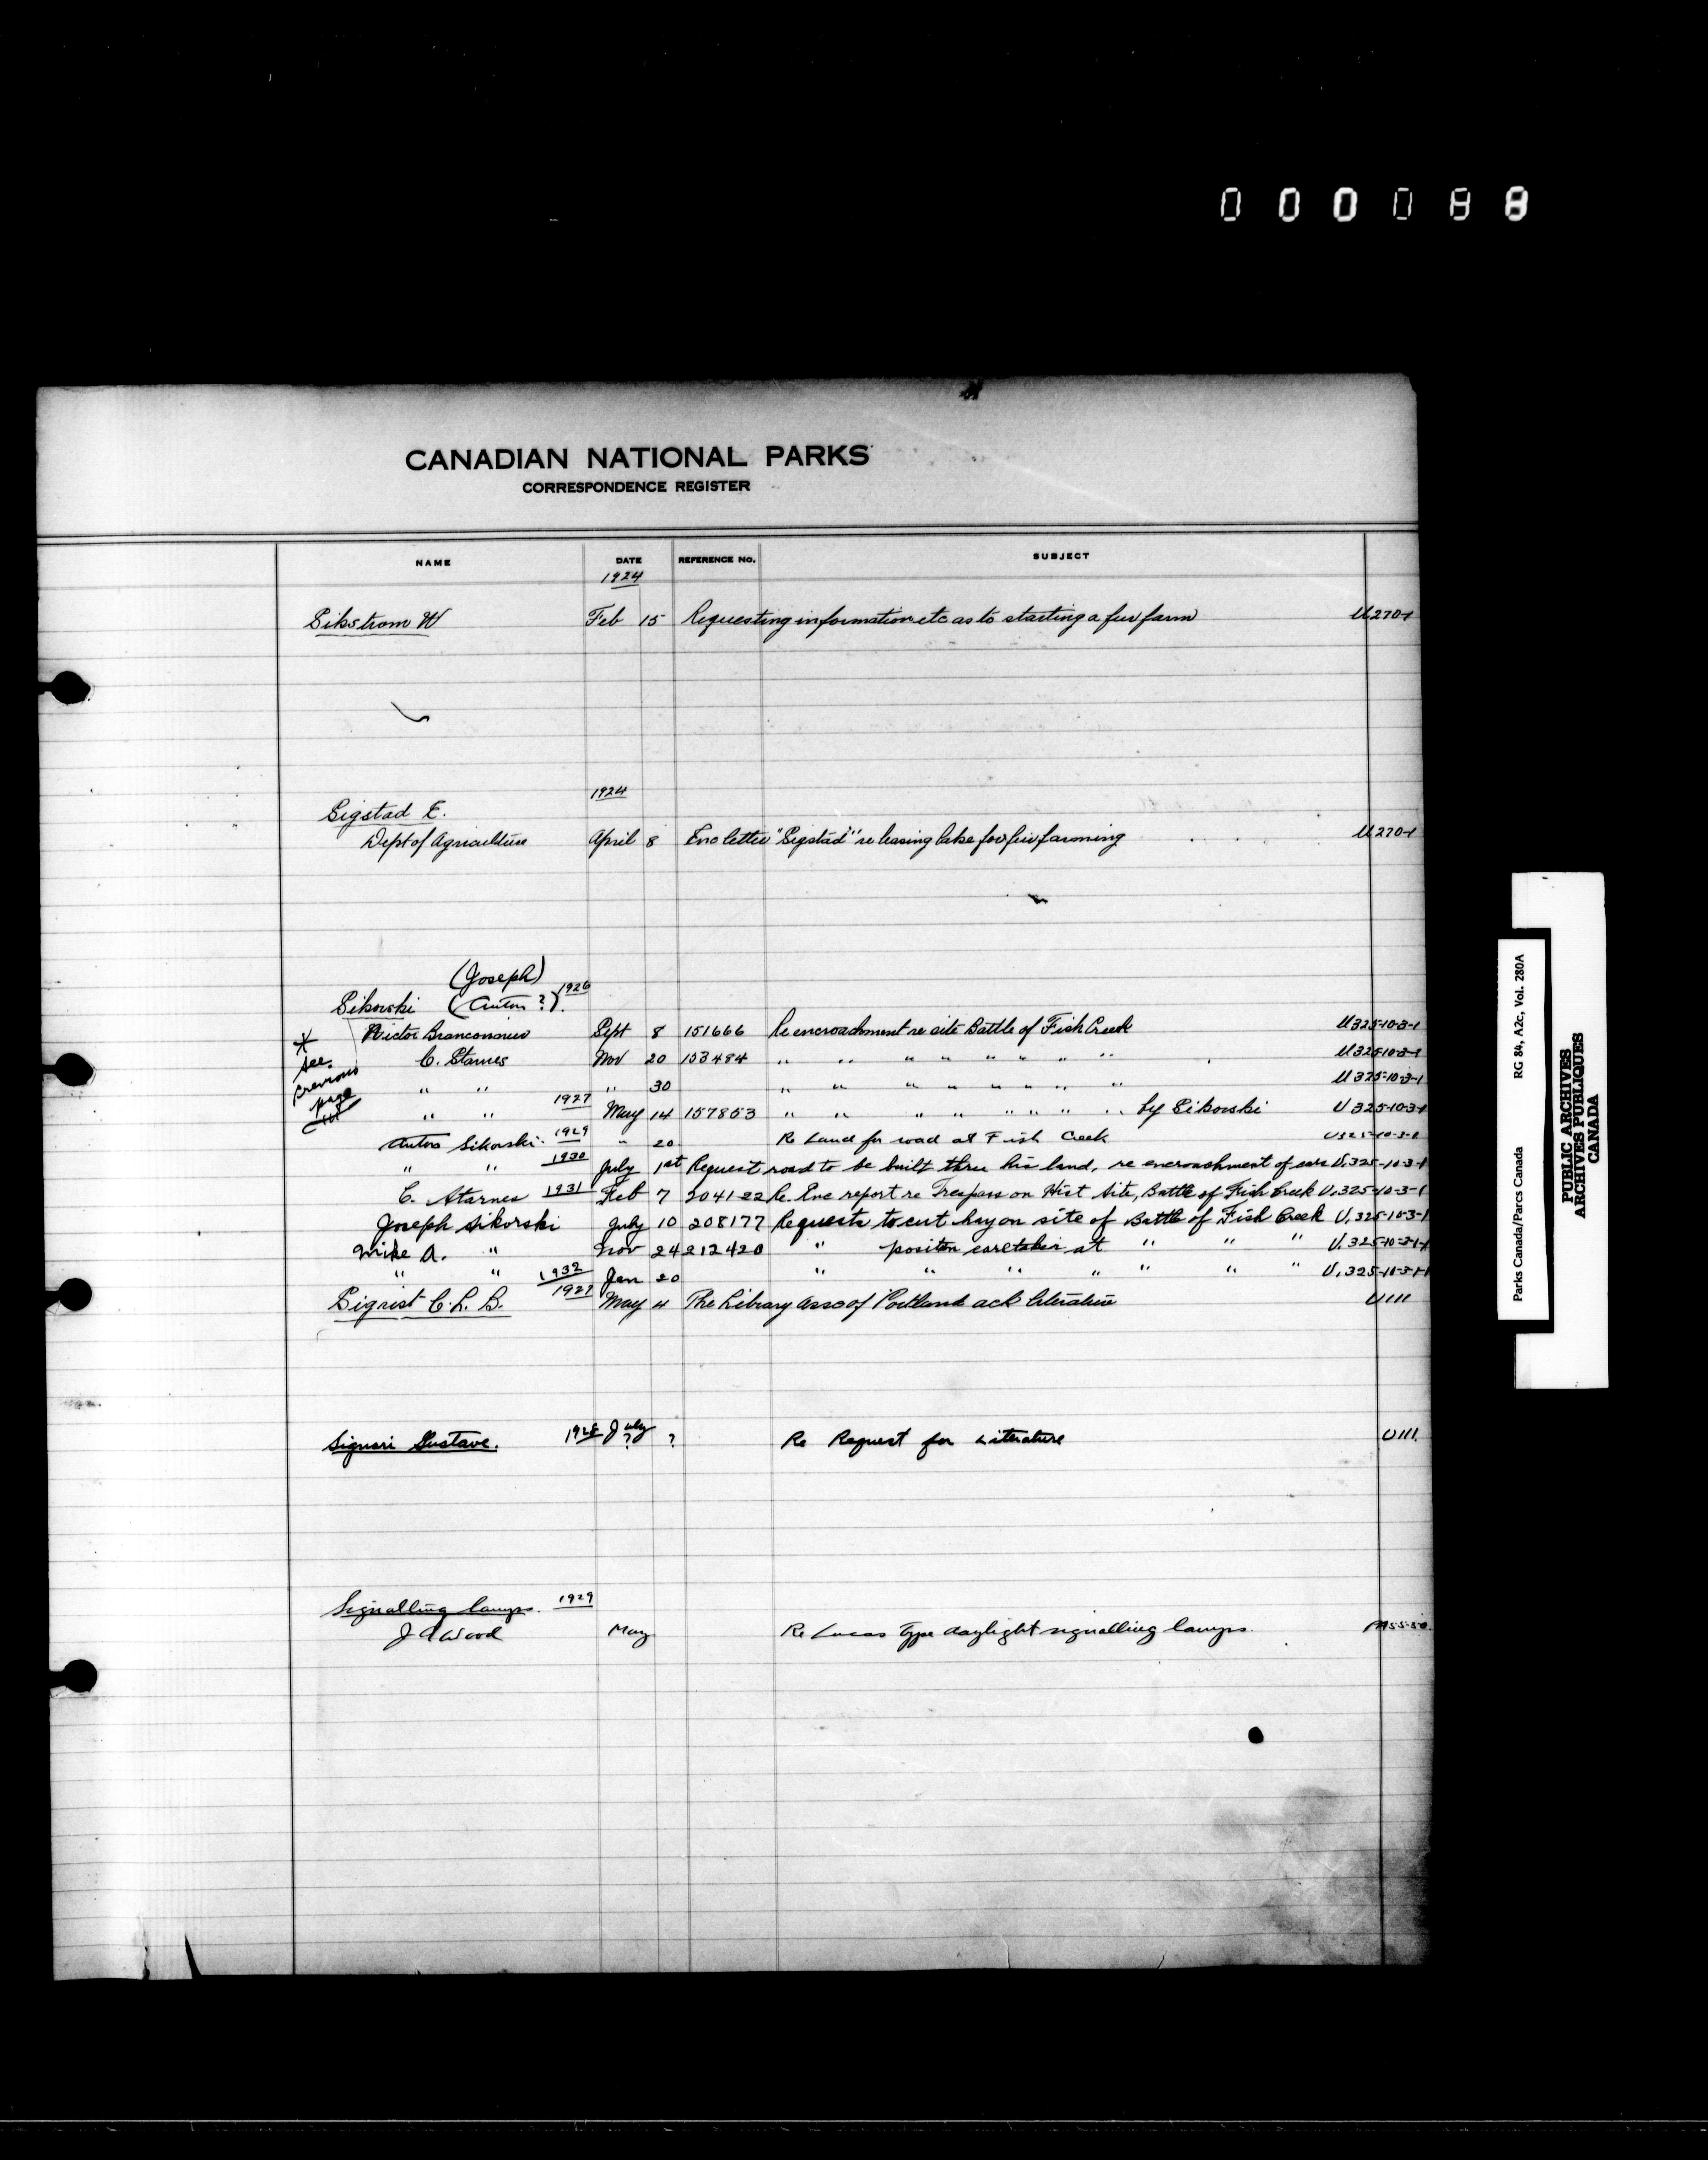 000088
CANADIAN NATIONAL PARKS
CORRESPONDENCE REGISTER
NAME DATE REFERENCE No. SUBJECT
1924
Sikstrom W Feb 15 Requesting information etc as to starting a fur farm U270-1
1924
Sigstad E.
Dept of Agriculture April 8 Enc letter "Sigstad" re leasing lake for fur farming U270-1
(Joseph)
Sikorski (Anton?) 1926
Victor Sept 8 151666 Re encroachment re site Battle of Fish Creek U325-10-3-1
* see previous page
C. Starnes Nov 20 153484 " " " " " " " " U325-10-3-1
" " " 30 " " " " " " " " U325-10-3-1
" " 1927 May 14 157853 " " " " " " " " by Sikorski U325-10-3-1
Anton Sikorski. 1929 " 20 Re Land for road at Fish Creek U325-10-3-1
" " 1930 July 1st Request road to be built thru his land, re encroachment of U.325-10-3-1
C. Starnes 1931 Feb 7 204122 Re. Enc report re Trespass on Hist Site, Battle of Fish Creek U.325-10-3-1
Joseph Sikorski July 10 208177 Requests to cut hay on site of Battle of Fish Creek U.325-10-3-1
Mike A. " Nov 24 212420 " positon caretaker at " " " U.325-10-3-1-1
" " 1932 Jan 20 " " " " " " " U.325-10-3-1-1
Sigrist C. L. B. 1927 May 4 The Library Asso of Portland ack literature U111
Signori Gustave. 1928 July ? ? Re Request for Literature U111.
Signalling lamps. 1929
J A Wood May Re Lucas Type daylight signalling lamps.
Parks Canada/Parcs Canada RG 84, A2c, Vol. 280A
PUBLIC ARCHIVES
ARCHIVES PUBLIQUES
CANADA